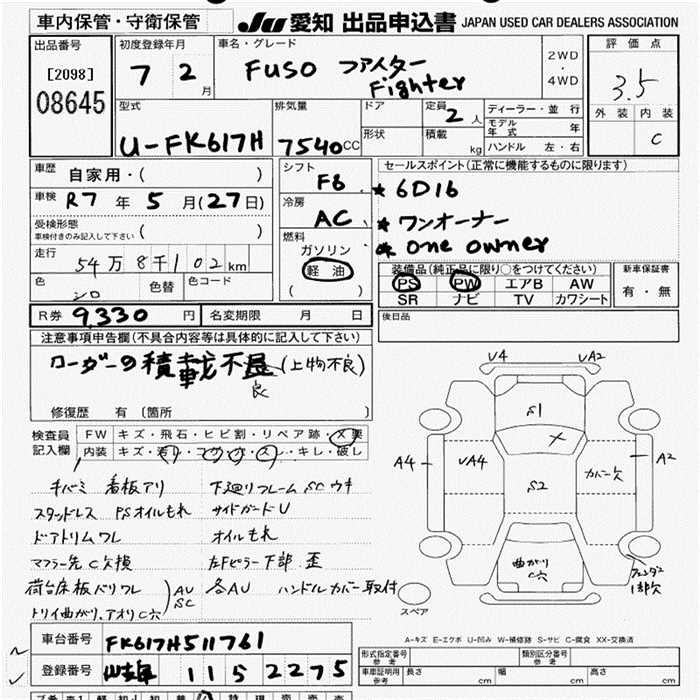 車内保管・守衛保管 JU 愛知 出品申込書 JAPAN USED CAR DEALERS ASSOCIATION
出品番号 初度登録年月 車名・グレード 評価点
[2098] 7 2 月 FUSO ファイター Fighter 2WD・4WD 3.5
08645 型式 排気量 ドア 定員 2 人 ディーラー・並行 外装 内装
モデル年式 年
U-FK617H 7540 CC 形状 積載 kg ハンドル 左・右 C
車歴 自家用・( ) シフト F6 セールスポイント(正常に機能するものに限ります)
車検 R7 年 5 月(27日) 冷房 AC * 6D16
受検形態 車検付きのみ記入して下さい ( ) 燃料 * ワンオーナー
走行 54万8千102km ガソリン * one owner
色 シロ 色替 色コード 軽油 装備品(純正品に限り○をつけてください) 新車保証書
( ) PS PW エアB AW 有・無
SR ナビ TV カワシート
R券 9,330 円 名変期限 月 日 後日品
注意事項申告欄(不具合内容等は具体的に記入して下さい)
ローダーの積載不良(上物不良)
良
修復歴 有 (箇所 )
検査員記入欄 FW キズ・飛石・ヒビ割・リペア跡・X要
内装 キズ・・キレ・破し
キバミ 看板アリ 下廻りフレームSCウキ
スタッドレス PSオイルもれ サイドガードU
ドアトリムワレ オイルもれ
マフラー先C欠損 左Fピラー下部 歪
荷台床板バリワレ AU SC 各AU ハンドルカバー取付
トリイ曲がり、アオリC穴
U4 UA2
S1
X
A4 UA4 S2 カバー欠 A2
曲がりC穴 フェンダー1部欠
スペア
A-キズ E-エクボ U-凹み W-補修跡 S-サビ C-腐食 XX-交換済
車台番号 FK617H511761 形式指定番号 参考 類別区分番号 参考
登録番号 115 2275 車庫証明用 参考 長さ 幅 高さ